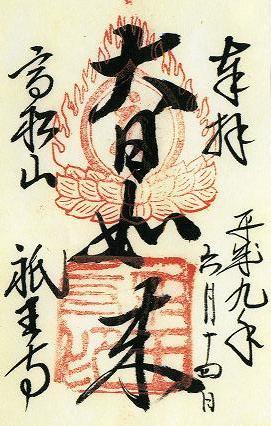 奉拝
平成九年
六月十四日
大日如来
高松山
祇王寺